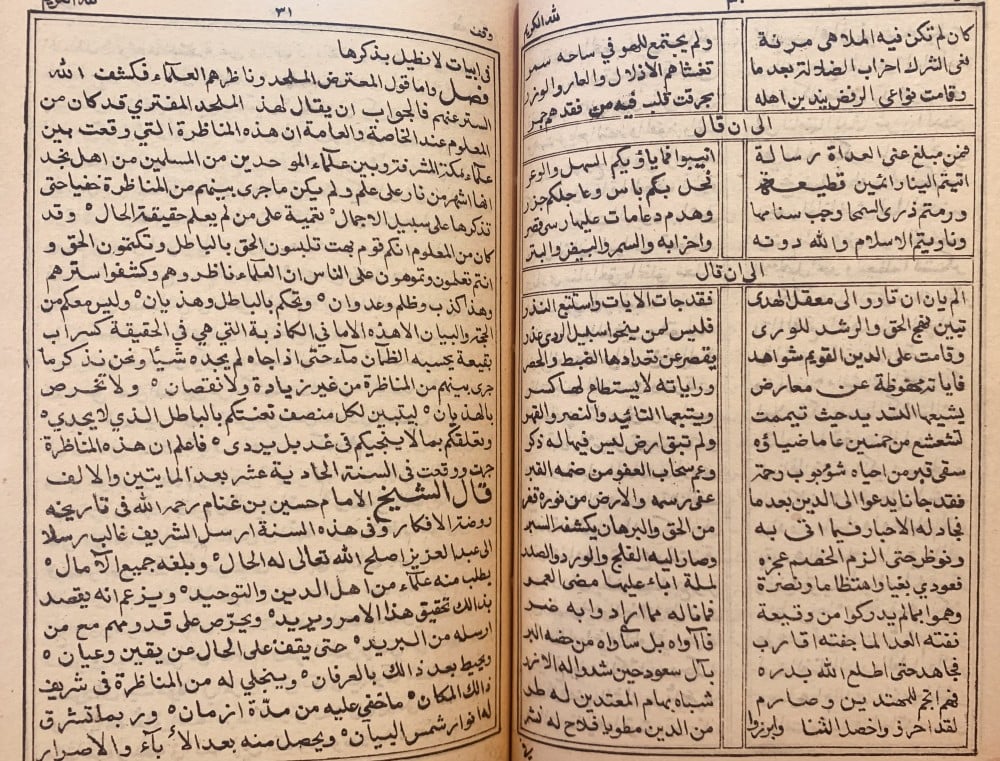 كان لم تكن فيه الملاهي مرنة ولم يجتمع للهو في ساحه سمر
نفى الشرك احزاب الضلالة بعد ما تغشاهم الاذلال والعار والوزر
وقامت نواعي الرفض يندبن اهله بجرقت قلب فيه من فقدهم جمر
الى ان قال
فمن مبلغ عني العداة رسالة انيبوا فماياؤيكم السهل والوعر
اتيتم الينا رائمين قطيعة نحل بكم باس وعاجلكم جزر
ورمتم ذرى السمحا وجب سنامها وهدم دعامات عليها رسى قصر
وناويتم الاسلام والله دونه واحزابه والسمر والبيض والبتر
الى ان قال
الم يان ان تاروا الى معقل الهدى فقد جات الايات واستلتج النذر
تبين نهج الحق والرشد للورى فليس لمن ينحوا سبيل الردى عذر
وقامت على الدين القويم شواهد يقصر عن تعدادها الضبط والحصر
فاياته محفوظة عن معارض وراياته لايستطاع لها كسر
يشيعها التسديد حيث تيممت ويتبعها التائيد والنصر والقهر
لتشعشع من خمسين عاما ضياؤه ولم تبق ارض ليس فيها له ذكر
سقى قبر من احياه شؤبوب رحمة وعم سحاب العفو من ضمه القبر
فقد جانا يدعوا الى الدين بعد ما عفى رسمه والارض من نوره قفر
نجادله الاحبار فيما اتى به من الحق والبرهان يكشفه السبر
ونوظر حتى الزم الخصم عجزه وصار اليه الفلج والورد والصدر
فعودي بغيا واهتظاما ونصرة لملة اباء عليها مضى العمر
وهموا بمالم يدركوا من وقيعة فماناله مما ارادوا به ضر
نفته العدا لما جفته اقارب فآواه بل ساواه من خصه البر
فجاهد حتى اطلع الله بدره بآل سعود حين شدوا له الازر
فهم انجم للمهتدين وصارم شباه بهام المعتدين له طر
لقد احرزوا حصل الثنا وابرزوا من الدين مطويا فلاح له نشر
٣١
وقف
لله الكريم
في ابيات لانطيل بذكرها
فصل واما قول المعترض الملحد وناظرهم العلماء فكشف الله
الستر عنهم فالجواب ان يقال لهذ الملحد المفتري قد كان من
المعلوم عند الخاصة والعامة ان هذه المناظرة التي وقعت بين
علماء مكة المشرفة وبين علماء الموحدين من المسلمين من اهل نجد
انها اشهر من نار على علم ولم يكن ماجرى بينهم من المناظرة خفيا حتى
تذكرها على سبيل الاجمال تعمية على من لم يعلم حقيقة الحال وقد
كان من المعلوم انكم قوم بهت تلبسون الحق بالباطل وتكتمون الحق و
انتم تعلمون وتموهون على الناس ان العلماء ناظروهم وكشفوا سترهم
وهذا كذب وظلم وعدوان وتحكم بالباطل وهذيان وليس معكم من
الحجة والبيان الا هذه الاماني الكاذبة التي هي في الحقيقة كسراب
بقيعة يحسبه الظمآن ماء حتى اذا جاه لم يجده شيئا ونحن نذكر ما
جرى بينهم من المناظرة من غير زيادة ولا نقصان ولا تخرص
بالهذيان ليتبين لكل منصف تعنتكم بالباطل الذي لايجدي
وتعلقكم بما لاينجيكم في غد بل يردي فاعلم ان هذه المناظرة
جرت ووقعت في السنة الحادية عشر بعد المايتين والالف
قال الشيخ الامام حسين بن غنام رحمه الله في تاريخه
روضة الافكار وفي هذه السنة ارسل الشريف غالب رسلا
الى عبد العزيز اصلح الله تعالى له الحال وبلغه جميع الآمال
يطلب منه علماء من اهل الدين والتوحيد ويزعم انه يقصد
بذالك تحقيق هذا الامر ويريد ويحرص على قدومهم مع من
ارسله من البريد حتى يقف على الحال عن يقين وعيان
ويحيط بعد ذالك بالعرفان وينجلي له من المناظرة في شريف
ذالك المكان ماخفي عليه من مدة ازمان وربما تشرق
له انوار شمس البيان ويحصل منه بعد الأباء والاصرار